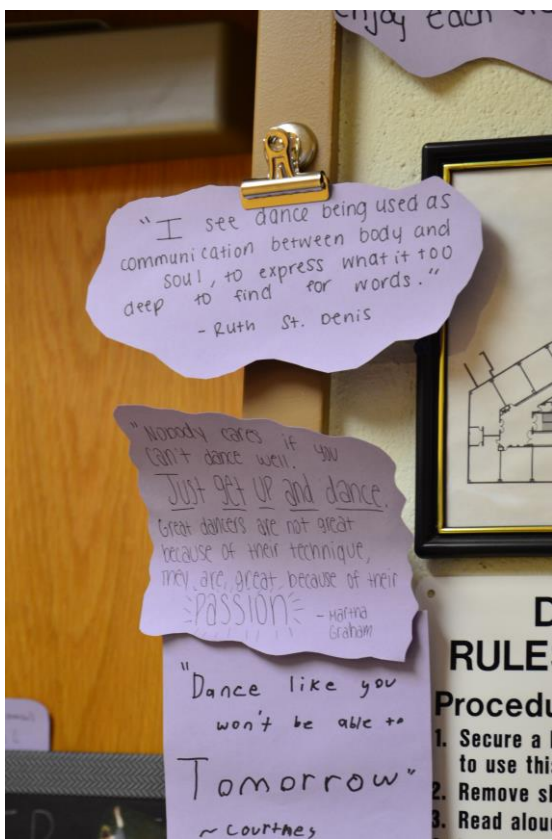 enjoy each
"I see dance being used as
communication between body and
soul, to express what it too
deep to find for words."
- Ruth St. Denis
"Nobody cares if you
can't dance well.
Just get up and dance.
Great dancers are not great
because of their technique,
they are great because of their
PASSION - Martha
Graham
"Dance like you
won't be able to
Tomorrow"
~ Courtney
RULES
Procedu
1. Secure a
to use this
2. Remove
3. Read aloud